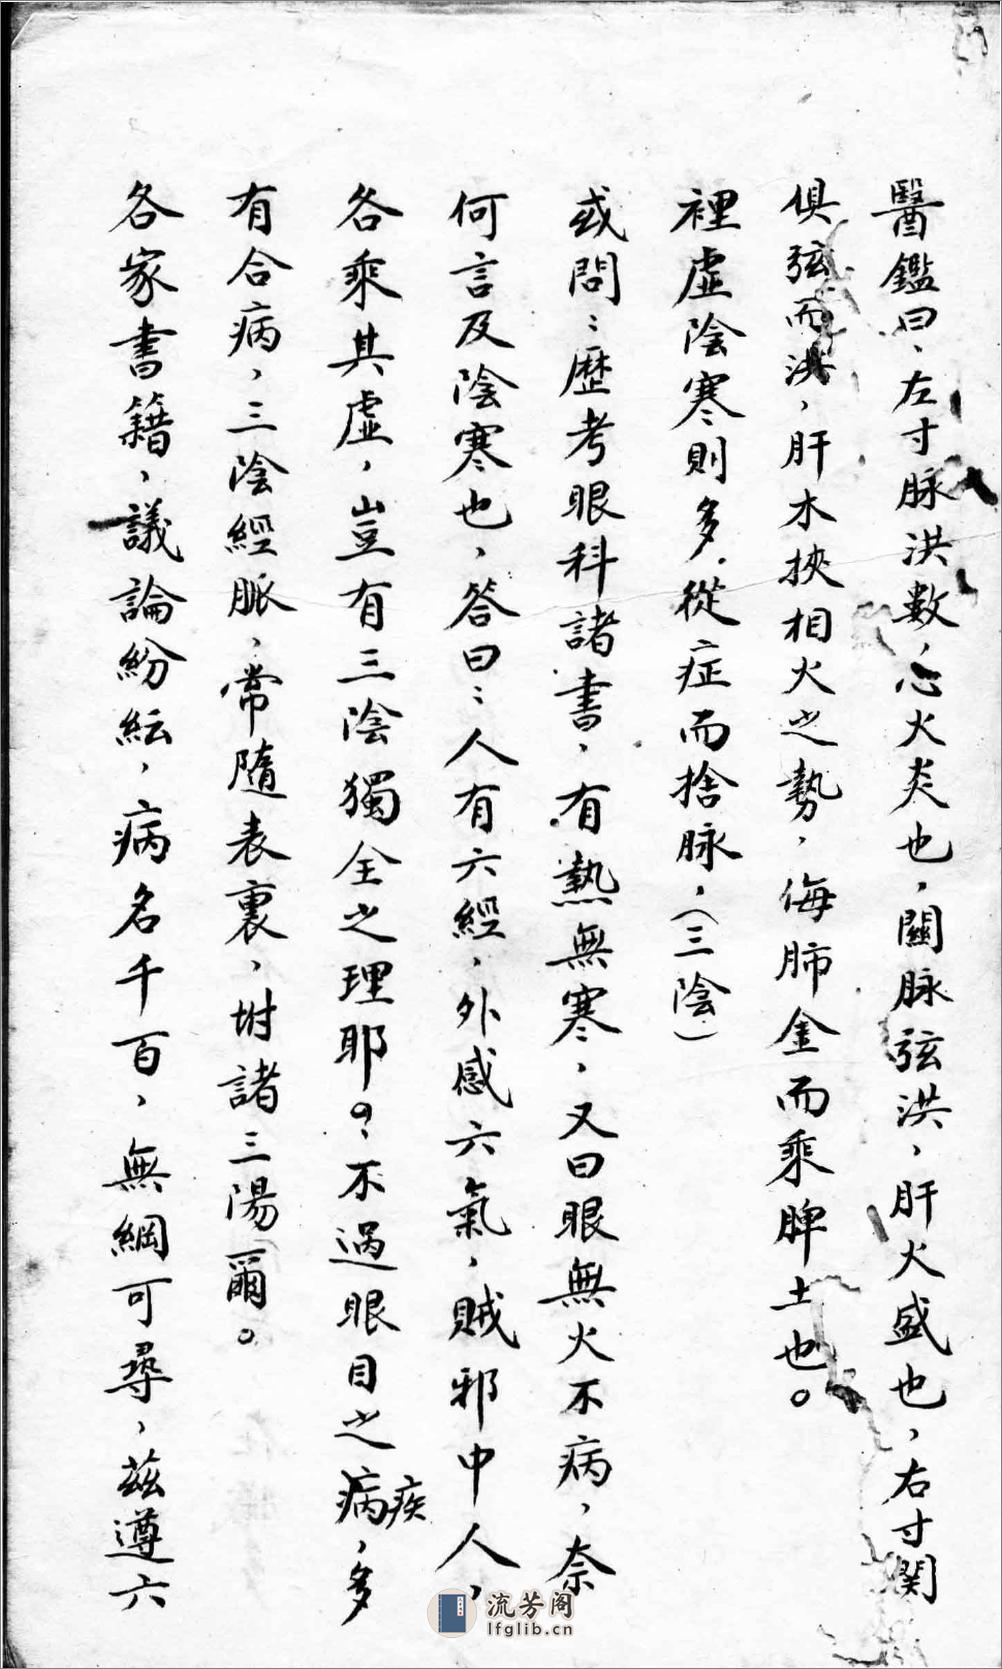 醫鑑曰、左寸脉洪數，心火炎也，關脉弦洪，肝火盛也，右寸関
俱弦而洪，肝木挾相火之勢，侮肺金而乘脾土也。
裡虛陰寒則多，從症而捨脉，（三陰）
或問：歷考眼科諸書，有熱無寒，又曰眼無火不病，奈
何言及陰寒也，答曰：人有六經，外感六氣，賊邪中人，
各乘其虛，豈有三陰獨全之理耶？不過眼目之病疾，多
有合病，三陰經脈，常隨表裏，坿諸三陽爾。
各家書籍，議論紛紜，病名千百，無綱可尋，茲遵六
流芳阁
lfglib.cn